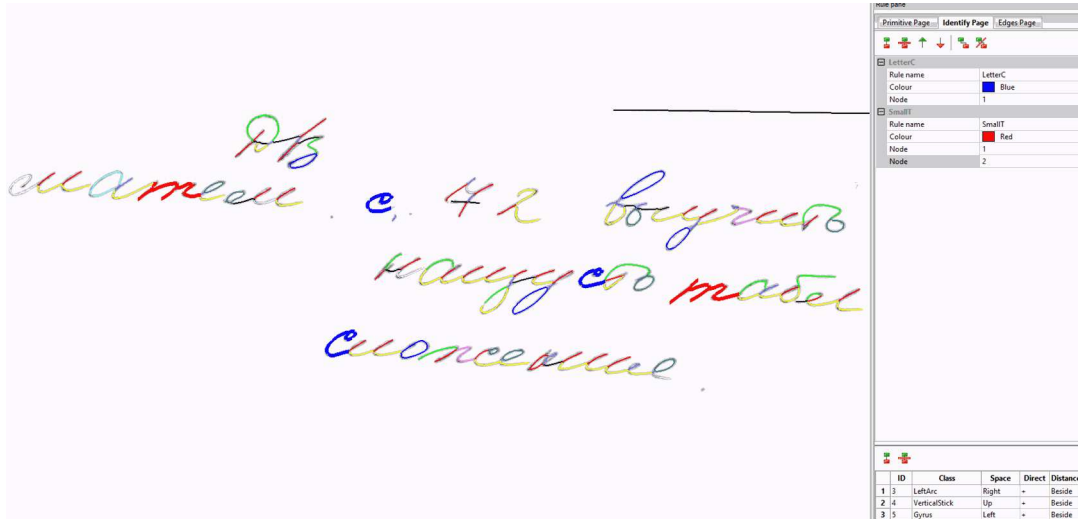 Д/з
матем. с. 42 выучить
наизусть табл
сложение.
Rule pane
Primitive Page Identify Page Edges Page
LetterC
Rule name LetterC
Colour Blue
Node 1
SmallT
Rule name SmallT
Colour Red
Node 1
Node 2
ID Class Space Direct Distance
1 3 LeftArc Right + Beside
2 4 VerticalStick Up + Beside
3 5 Gyrus Left + Beside